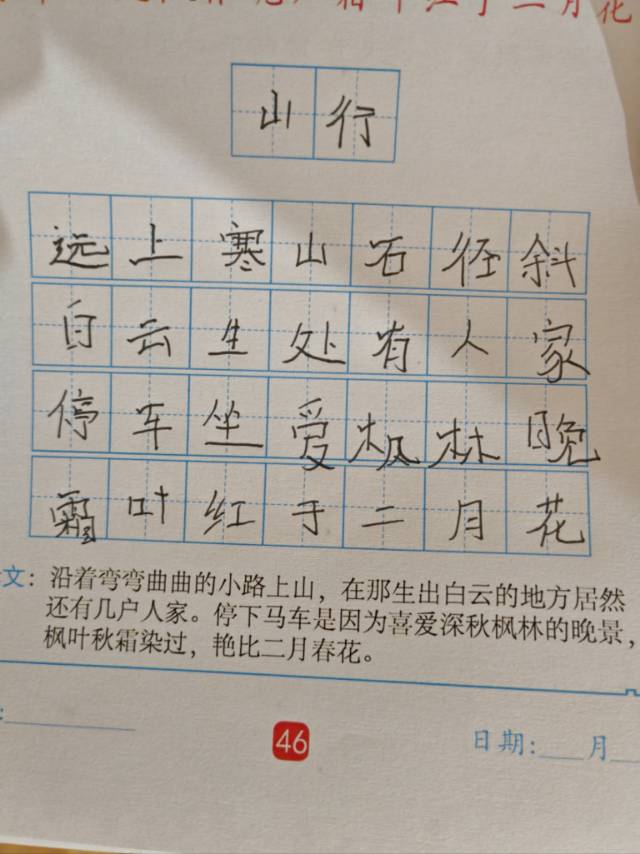 霜叶红于二月花
山行
远上寒山石径斜
白云生处有人家
停车坐爱枫林晚
霜叶红于二月花
文：沿着弯弯曲曲的小路上山，在那生出白云的地方居然
还有几户人家。停下马车是因为喜爱深秋枫林的晚景，
枫叶秋霜染过，艳比二月春花。
46
日期：　月